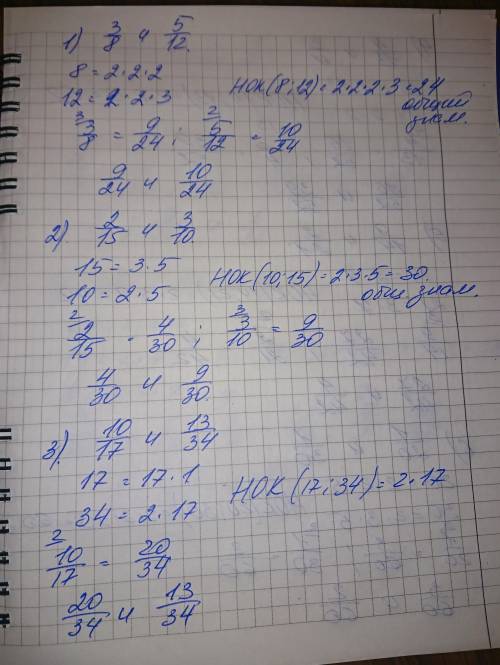 1) 3/8 и 5/12.
8 = 2·2·2
НОК(8;12) = 2·2·2·3 = 24
общий
знам.
12 = 2·2·3
³ 3/8 = 9/24 ; ² 5/12 = 10/24
9/24 и 10/24
2). 2/15 и 3/10.
15 = 3·5
НОК(10;15) = 2·3·5 = 30
общ. знам.
10 = 2·5
² 2/15 = 4/30 ; ³ 3/10 = 9/30
4/30 и 9/30
3). 10/17 и 13/34
17 = 17·1
НОК(17;34) = 2·17
34 = 2·17
² 10/17 = 20/34
20/34 и 13/34